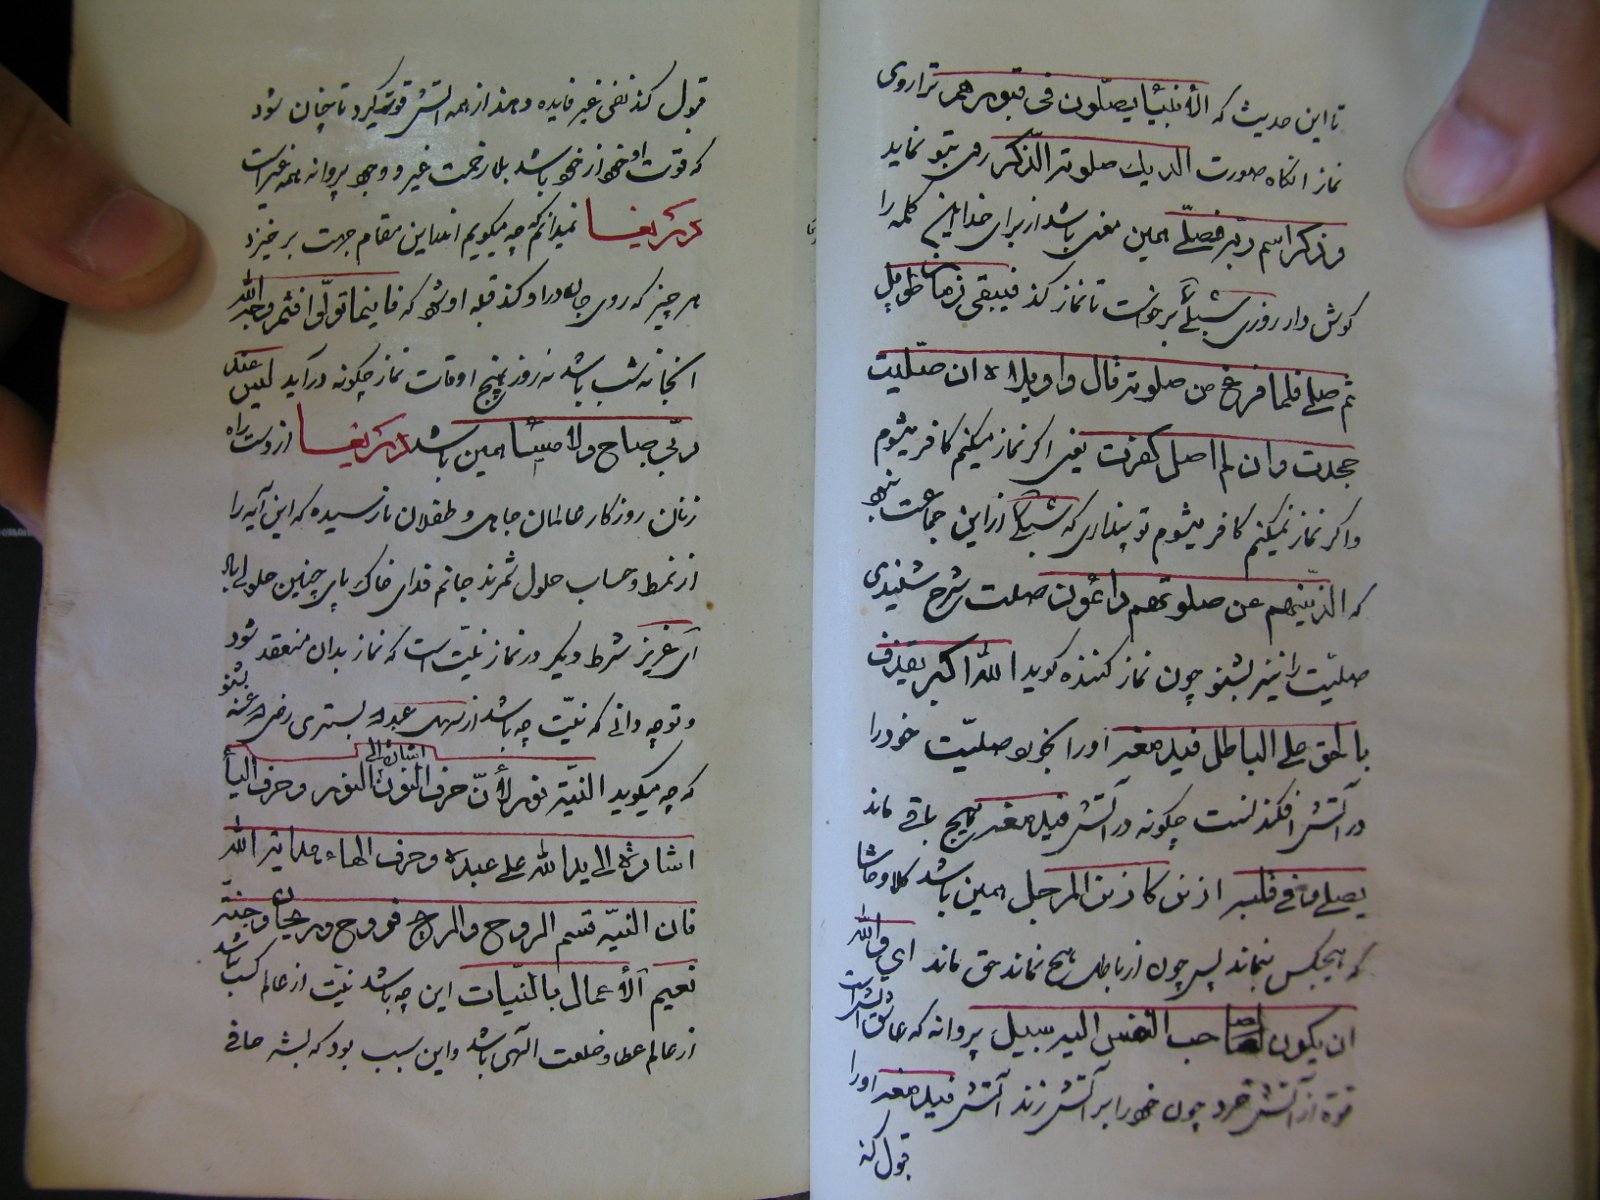 تا این حدیث که الأنبیأ یصلّون فی قبورهم ترا روی
نماز آنگاه صورت الدیك صلوته الذّکر روی بتو نماید
و ذکر اسم ربّه فصلّی همین معنی باشد از برای خدا این کلمه را
کوش دار روزی شبلی برخاست تا نماز کند فبقی زماناً طویل
ثم صلی فلما فرغ من صلوته قال واویلاه ان صلّیت
جحدت وان لم اصل کفرت یعنی اکر نماز میکنم کافر میشوم
واکر نماز نمیکنم کافر میشوم تو پنداری که شبلی از این جماعت نبود
که الذینهم عن صلوتهم دائمون صلت شرح شنیدی
صلیّت را نیز بشنو چون نماز کننده کوید الله اکبر یقذف
بالحق علی الباطل فیدمغه او را بخورد صلیّت خود را
در آتش افکند نست چکونه در آتش فیدمغه هیچ باقی ماند
یصلی ما فی قلبه ازیز کازیز المرجل همین باشد کلا و حاشا
که هیچکس بنماند پس چون از باطل هیچ نماند حق ماند ای والله
ان یکون لصاحب النفس الیه سبیل پروانه که عاشق آتش است
قوة از آتش خورد چون خود را بر آتش زند آتش فیدمغه او را
قبول کند
قبول کند نفی غیر فایده دهد از همه آتش قوت کیرد تا چنان شود
که قوت او خود از خود باشد بلا زحمت غیر و وجود پروانه همه غیر است
ای دریغا نمیدانم چه میکویم اندر این مقام جهت بر خیزد
هر چیز که روی جان در او کند قبله او شود که فاینما تولّوا فثمّ وجه الله
آنجا نه شب باشد نه روز پنج اوقات نماز چکونه درآید لیس عند
ربّی صباح ولا مسأ همین باشد ای دریغا از دست راه
زنان روزکار عالمان جاهل و طفلان نارسیده که این آیه را
از نمط و حساب حلول شمرند جانم فدای خاك پای چنین حلولی باد
ای عزیز شرط دیکر در نماز نیّت است که نماز بدان منعقد شود
و تو چه دانی که نیّت چه باشد از سهل عبدالله تستری رضی الله عنه بشنو
که چه میکوید النیّة نور لأنّ حرف النون اشارة الی النور و حرف الیأ
اشارة الی ید الله علی عبده و حرف الهاء هدایة الله
فان النیّة قسم الروح والریح فروح و ریحان و جنّة
نعیم الأعمال بالنیّات این چه باشد نیّت از عالم کسب باشد
از عالم عطا و خلعت الهی باشد و این سبب بود که بشر حافی